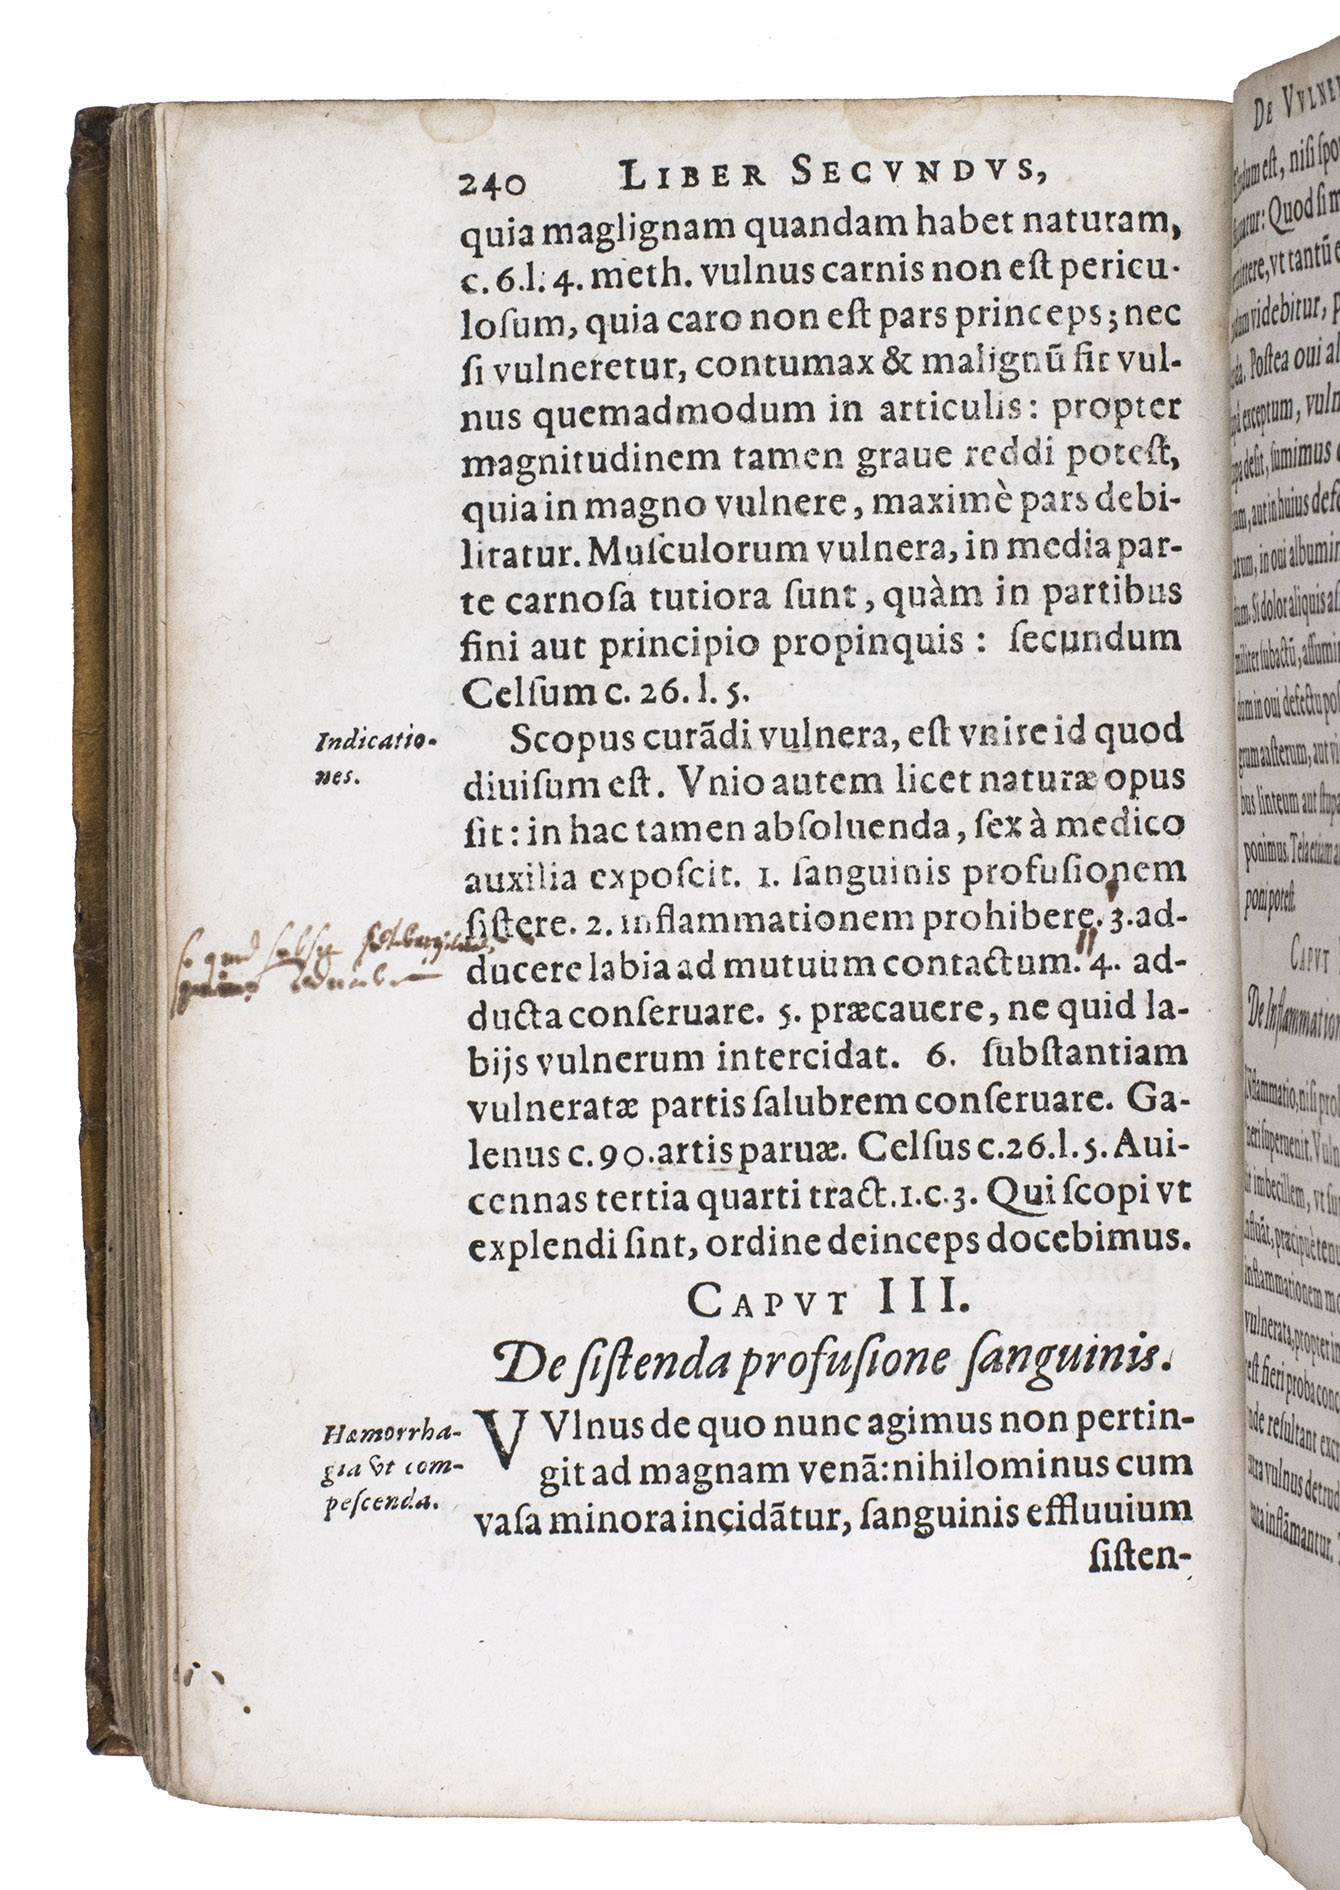 240 LIBER SECVNDVS,
quia maglignam quandam habet naturam,
c. 6. l. 4. meth. vulnus carnis non eſt pericu-
loſum, quia caro non eſt pars princeps; nec
ſi vulneretur, contumax & malignū ſit vul-
nus quemadmodum in articulis: propter
magnitudinem tamen graue reddi poteſt,
quia in magno vulnere, maximè pars debi-
litatur. Muſculorum vulnera, in media par-
te carnoſa tutiora ſunt, quàm in partibus
fini aut principio propinquis: ſecundum
Celſum c. 26. l. 5.
Indicatio-
nes.
Scopus curãdi vulnera, eſt vnire id quod
diuiſum eſt. Vnio autem licet naturæ opus
ſit: in hac tamen abſoluenda, ſex à medico
auxilia expoſcit. 1. ſanguinis profuſionem
ſiſtere. 2. inflammationem prohibere. 3. ad-
ducere labia ad mutuum contactum. 4. ad-
ducta conſeruare. 5. præcauere, ne quid la-
bijs vulnerum intercidat. 6. ſubſtantiam
vulneratæ partis ſalubrem conſeruare. Ga-
lenus c. 90. artis paruæ. Celſus c. 26. l. 5. Aui-
cennas tertia quarti tract. 1. c. 3. Qui ſcopi vt
explendi ſint, ordine deinceps docebimus.
CAPVT III.
De ſiſtenda profuſione ſanguinis.
Hæmorrha-
gia vt com-
peſcenda.
VVlnus de quo nunc agimus non pertin-
git ad magnam venã: nihilominus cum
vaſa minora incidãtur, ſanguinis effluuium
ſiſten-
DE VVLNE
eſt, niſi ſpo
Quod ſi m
vt tantū
videbitur,
Poſtea oui al
exceptum, vuln
deſit, ſumimus
aut in huius defe
in oui albumin
Si dolor aliquis
ſubactū, aſſumi
in oui defectu poſ
auſterum, aut vi
bus linteum aut ſtupa
ponimus. Tela etiam a
poni poteſt.
CAPVT
De Inflammation
Inflammatio, niſi pro
ſuperuenit. Vuln
imbecillem, vt
præcipuè tenu
inflammationem
vulnerata, propter in
fieri proba conc
reſultant
vulnus detrud
inflãmantur.